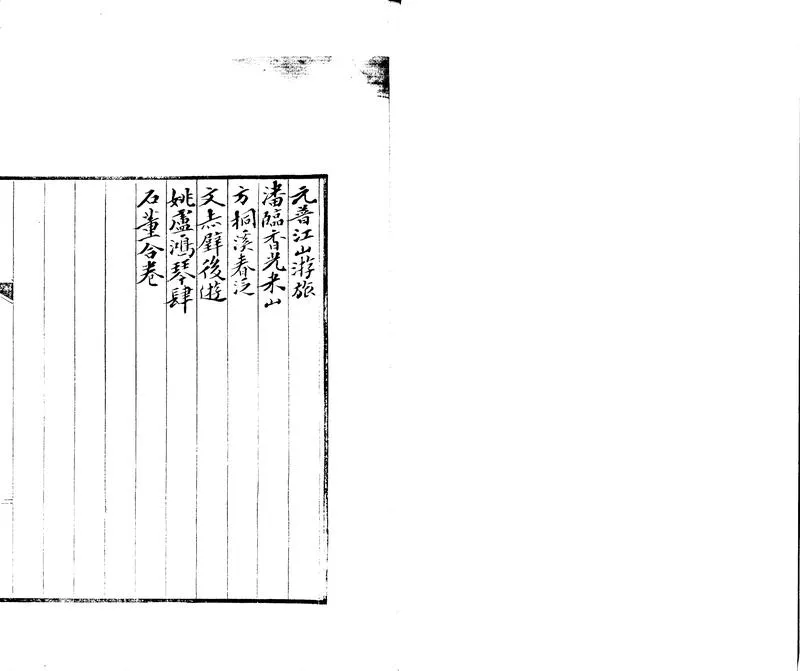 元普江山游旅
潘臨香光米山
方桐溪春泛
文赤壁後遊
姚盧鴻琴肆
石董合卷